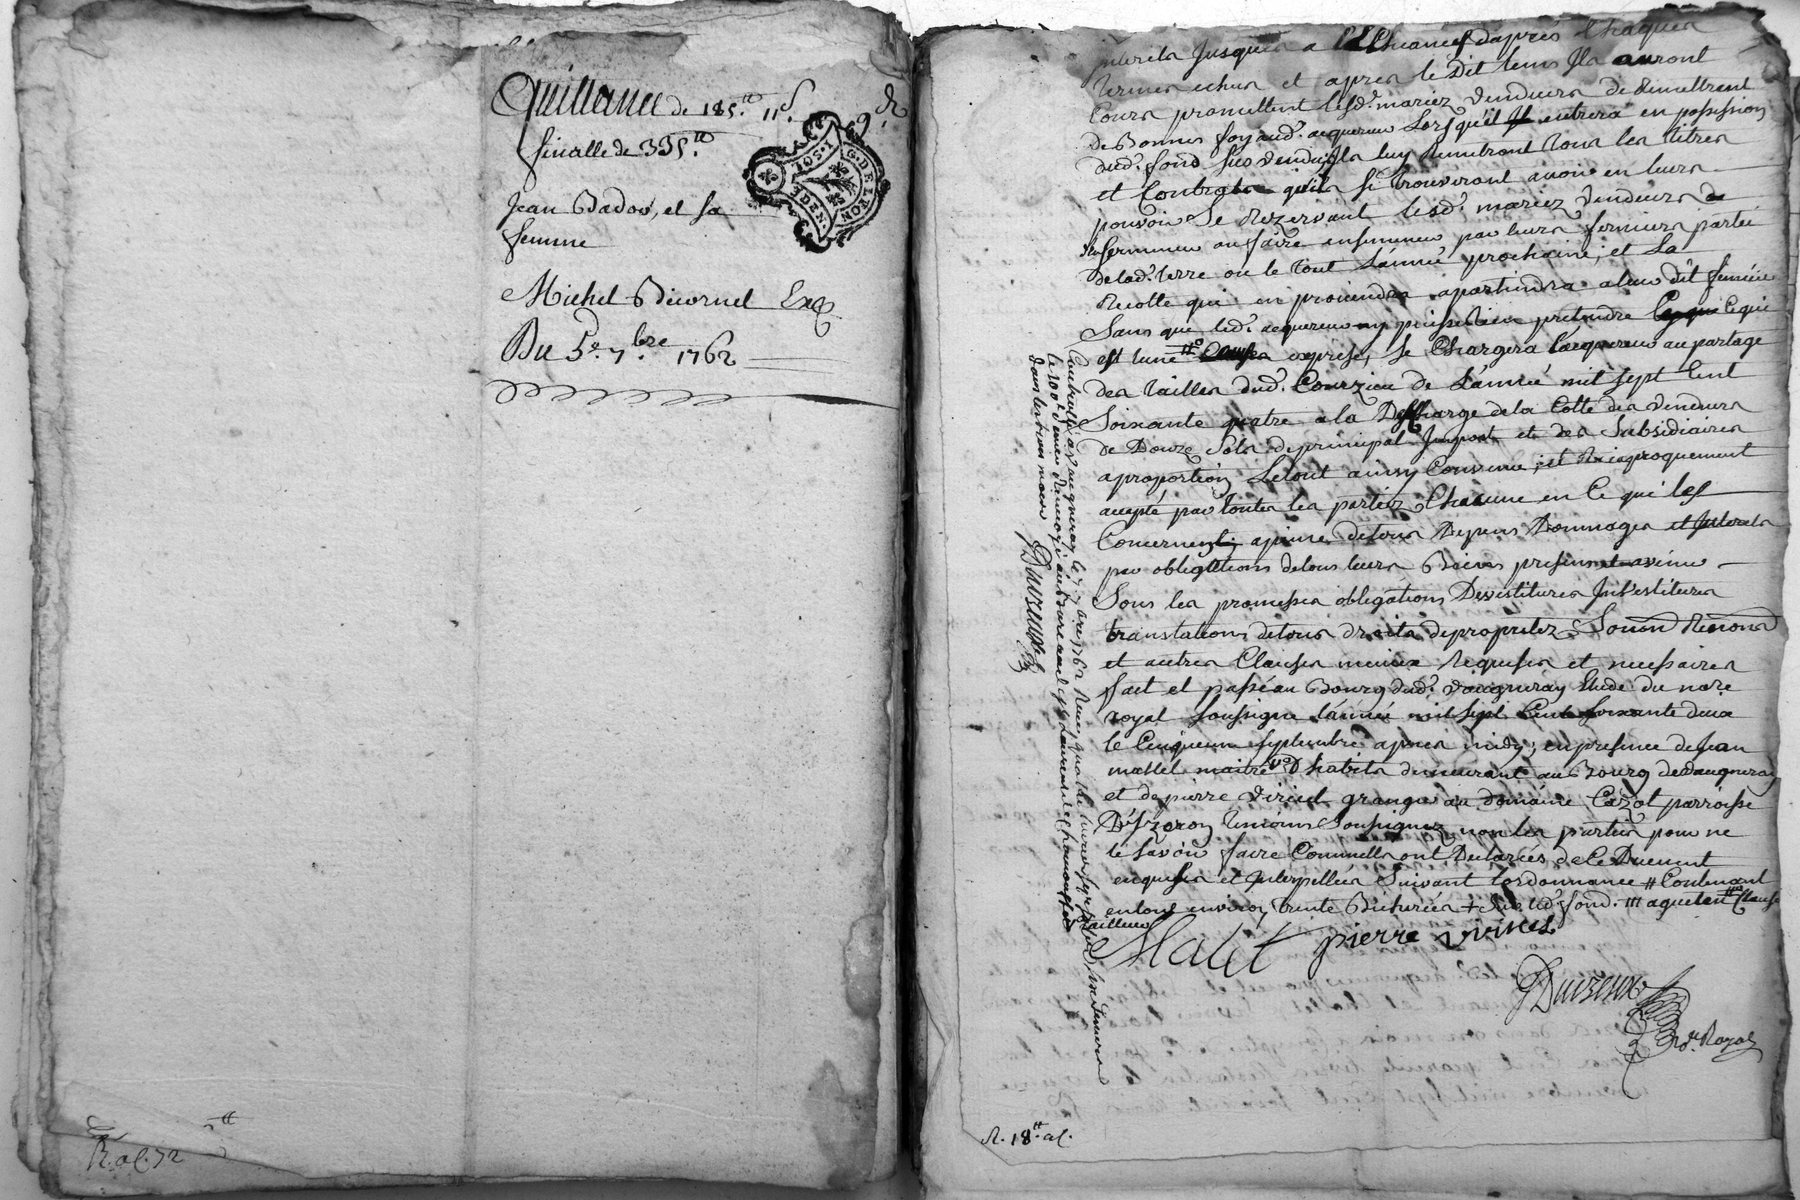 Quittance de 185.tt 11.s 9.d
finalle de 335.tt
Jean Badoo, et sa
femme
Michel Bicornet Exp
Du 5e. 7.bre 1762
G. DE LYON
1. SOL
DEN.
R. al. 72
Interets jusques a l'Echeance d'apres Chaques
termes echus et apres le Dit tems Ils auront
Cours promettent lesd. mariez vendeurs de Remettrent
dud. fond sus vendu Ils luy Remetront tous les titres
et Contrats qu'ils se trouveront avoir en leurs
pouvoir Se Rezervant lesd. mariez vendeurs de
ensemmencer ou faire ensemmencer par leurs fermiers partie
de lad. terre ou le tout L'année prochaine, et La
Recolte qui en proviendra apartiendra a leur dit fermier
Sans que led. acquereur ny puisse Rien pretendre Ce qui
est lune Clause expresse, Se Chargera l'acquereur au partage
des tailles dud. Courzieu de L'année mil sept Cent
Soixante quatre a la Decharge de la Cotte des vendeurs
de Douze Sols de principal Impost et des Subsidiaires
a proportion Le tout ainsy Convenu, et Reciproquement
accepté par toutes les parties Chacune en Ce qui les
Concernent, a peine de tous Depens Dommages et Interets
par obligations de tous leurs Biens presens et avenir
Sous les promesses obligations Devestitures Investitures
translations de tous droits de proprietez Soumn Renond
et autres Clauses mieux Requises et necessaires
fait et passé au Bourg dud. vaugneray Etude du nore
royal Soussigné L'année mil sept Cent Soixante deux
le Cinquieme Septembre apres midy, en presence de Jean
mallet maitre D'habits demeurant au Bourg de vaugneray
et de pierre viricel granger au domaine Cazot parroisse
temoins Soussignez non les parties pour ne
le savoir faire Comm'elles ont Declarées de Ce Duement
enquises et Interpellées Suivant l'ordonnance # Contenant
en tout environ trente Bicherées + dud. fond. ttt aquiter Clause
tailleur
Malet pierre viricel
Duizeux
nore Royal
Controllé a vaugneray le 7 7bre 1762 Reçu
dans les tems
Duizeux
R. 18.tt al.